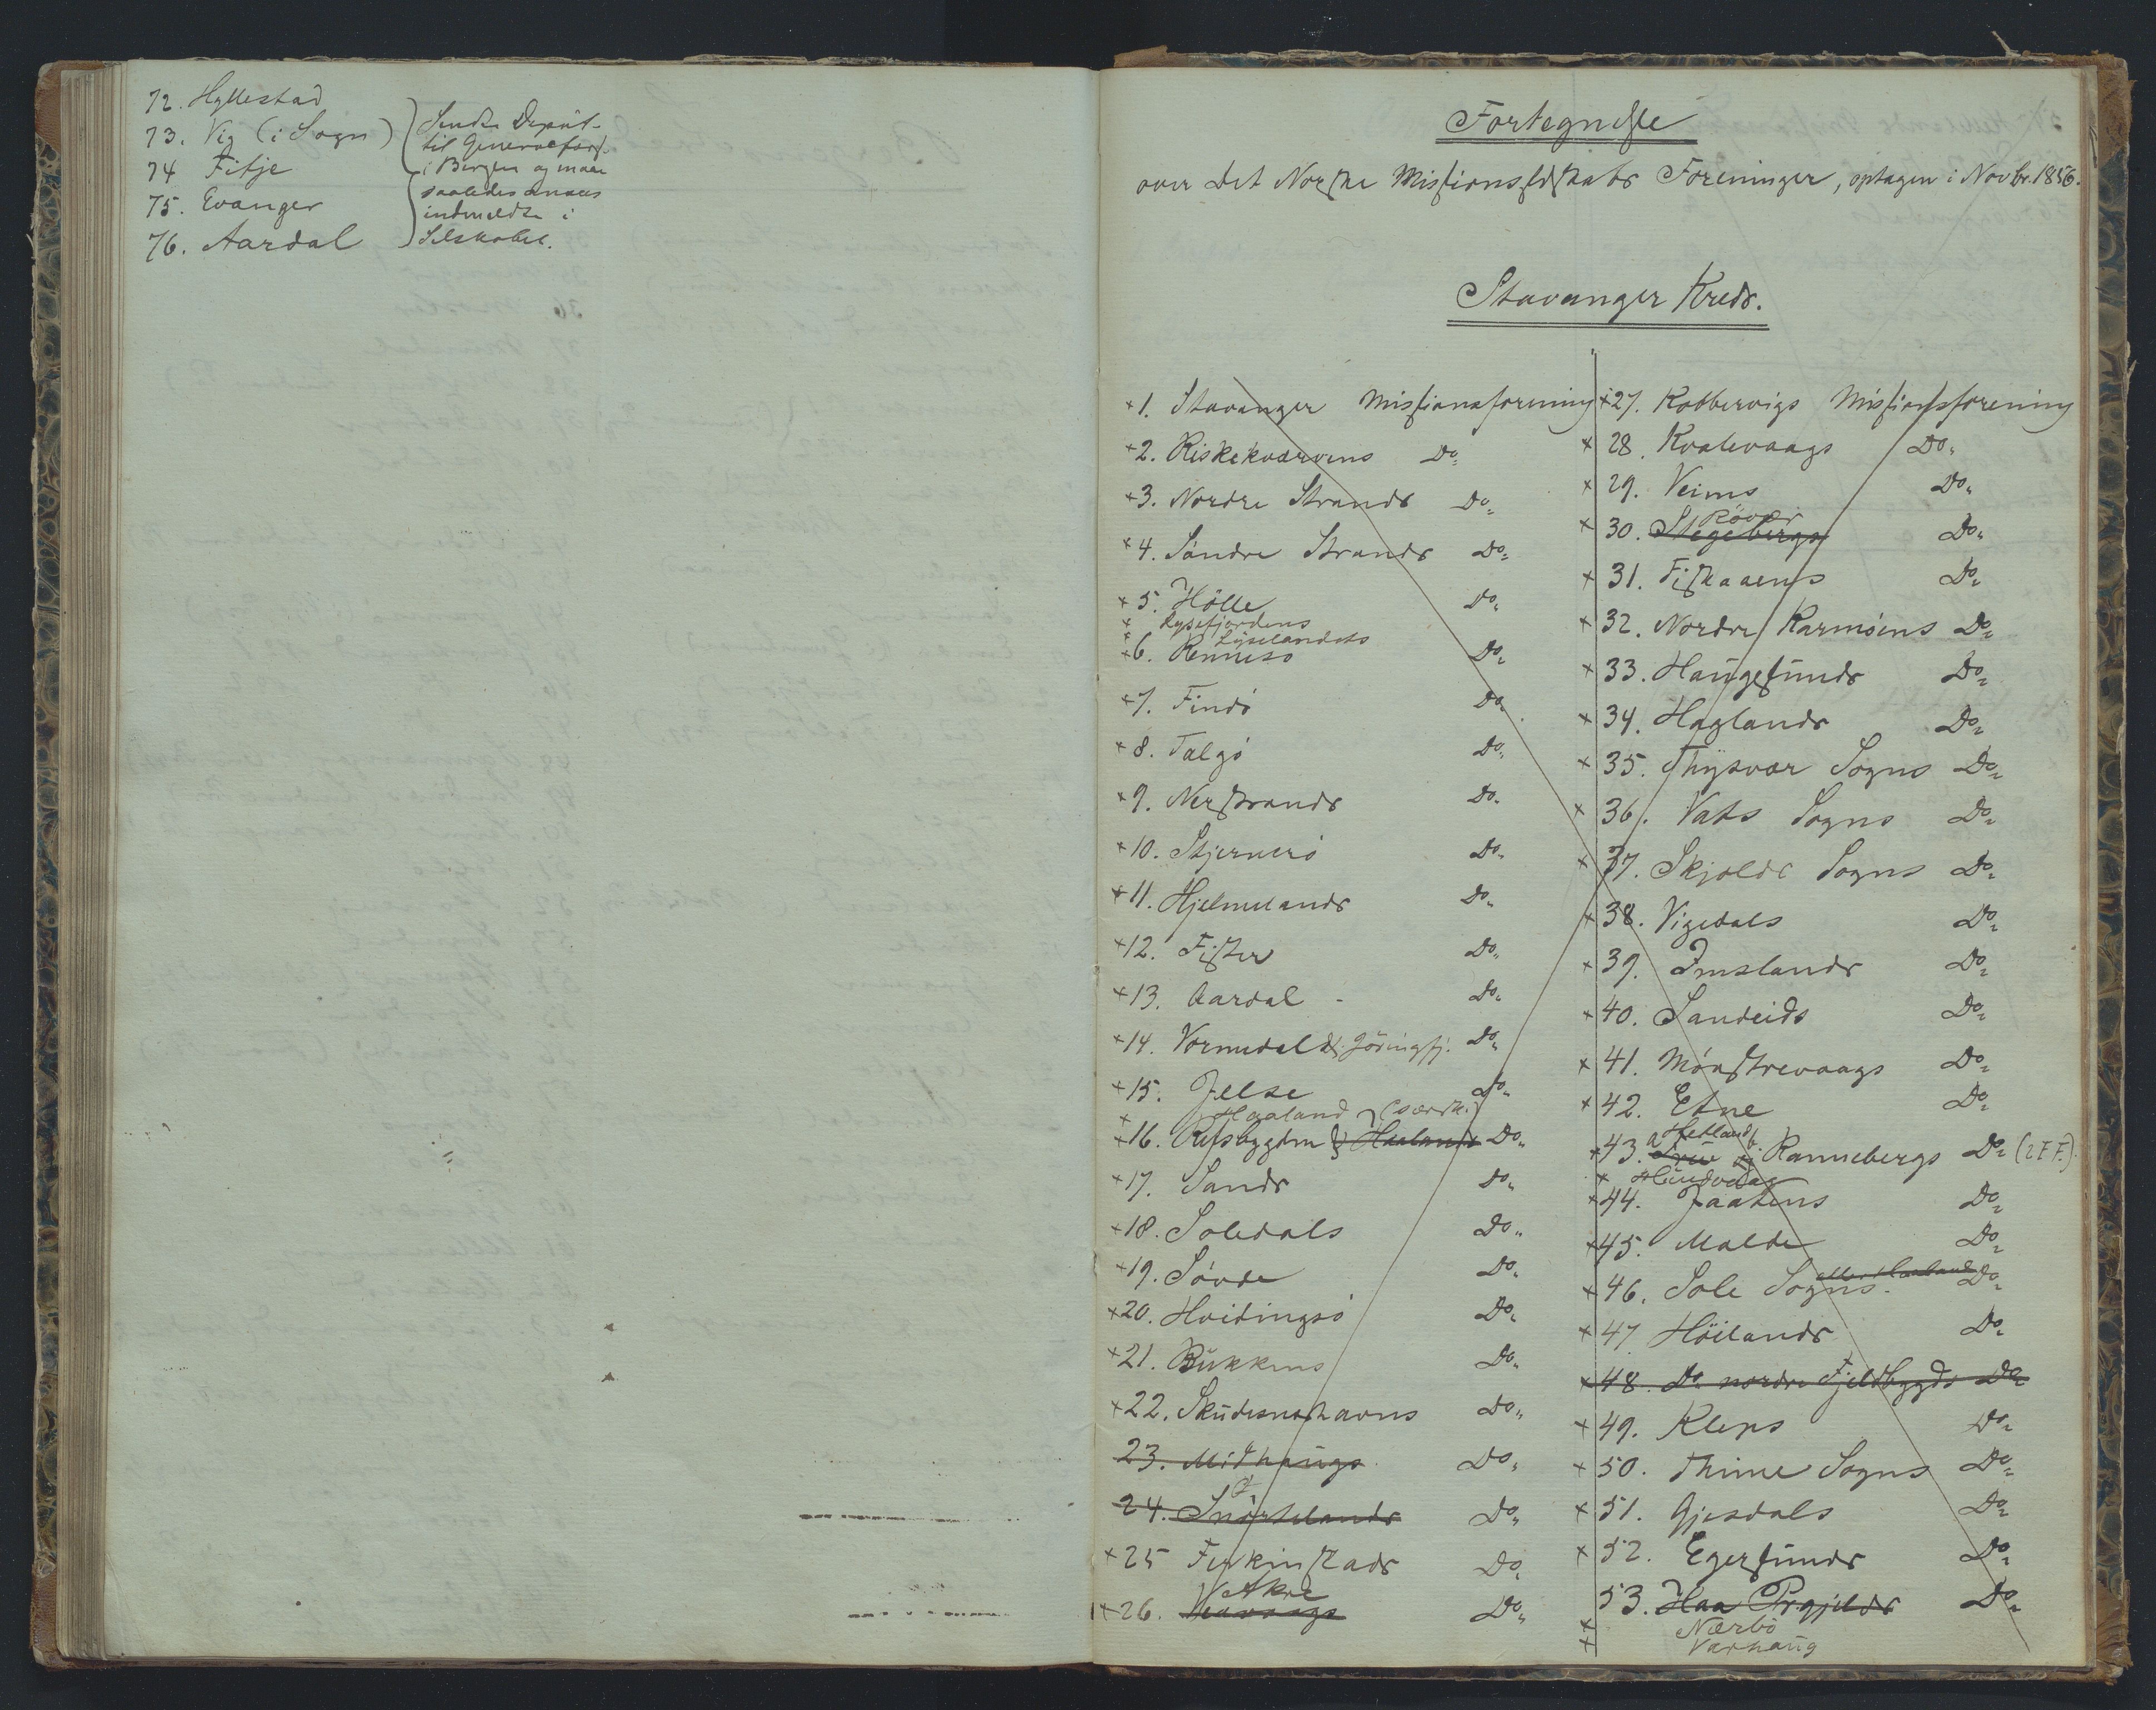 72. Hyllestad
73. Vig (i Sogn)
74 Fitje
75. Evanger
76. Aardal
Sendte Deput-
til Generalfors.
i Bergen og maae
saaledes ansees
indmeldte i
Selskabet.
Fortegnelse
over det Norske Missionsselskabs Foreninger, optagen i Novbr. 1856.
Stavanger Kreds.
+1. Stavanger Missionsforening
+2. Riskekværvens Do.
+3. Nordre Strands Do.
+4. Söndre Strands Do.
+5. Hölle Do.
+ Lysefjordens
+ Lyselandets
+6. Rennesö Do.
+7. Findö Do.
+8. Talgö Do.
+9. Nerstrands Do.
+10. Stjernerö Do.
+11. Hjelmelands Do.
+12. Fister Do.
+13. Aardal - Do.
+14. Vormedal & Jösingfj. Do.
+15. Jelse Do.
+ Haaland (særsk.)
+16. Refsbygden & Haalands Do.
+17. Sands Do.
+18. Soledals Do.
+19. Sövde Do.
+20. Hvidingsö Do.
+21. Bukkens Do.
+22. Skudesneshavns Do.
23. Midhaugs Do.
24. Snörtelands Do.
+25 Ferkinstads Do.
Akre
+26. Veavaags Do.
+27. Kobbervigs Missionsforening
+ 28. Kvalevaags Do.
+ 29. Veims Do.
Röver
+ 30. Stegebergs Do.
+ 31. Fiskaaens Do.
+ 32. Nordre Karmöens Do.
+ 33. Haugesunds Do.
+ 34. Haglands Do.
+ 35. Thysvær Sogns Do.
+ 36. Vats Sogns Do.
+ 37. Skjolds Sogns Do.
+ 38. Vigedals Do.
+ 39. Imslands Do.
+ 40. Sandeids Do.
+ 41. Mönstrevaags Do.
+ 42. Etne Do.
a Hetland b.
+43. og Rannebergs Do. (2 F F.)
+ Hundvaag
+44. Jaatens Do.
+45. Malde Do.
+46. Sole Sogns. Do.
+ 47. Höilands Do.
+48. Do. nordre Fjeldbygds Do.
+ 49. Kleps Do.
+ 50. Thime Sogns Do.
+ 51. Gjesdals Do.
+ 52. Egersunds Do.
53. Haa Prgjelds Do.
+ Nærbö
+ Varhaug